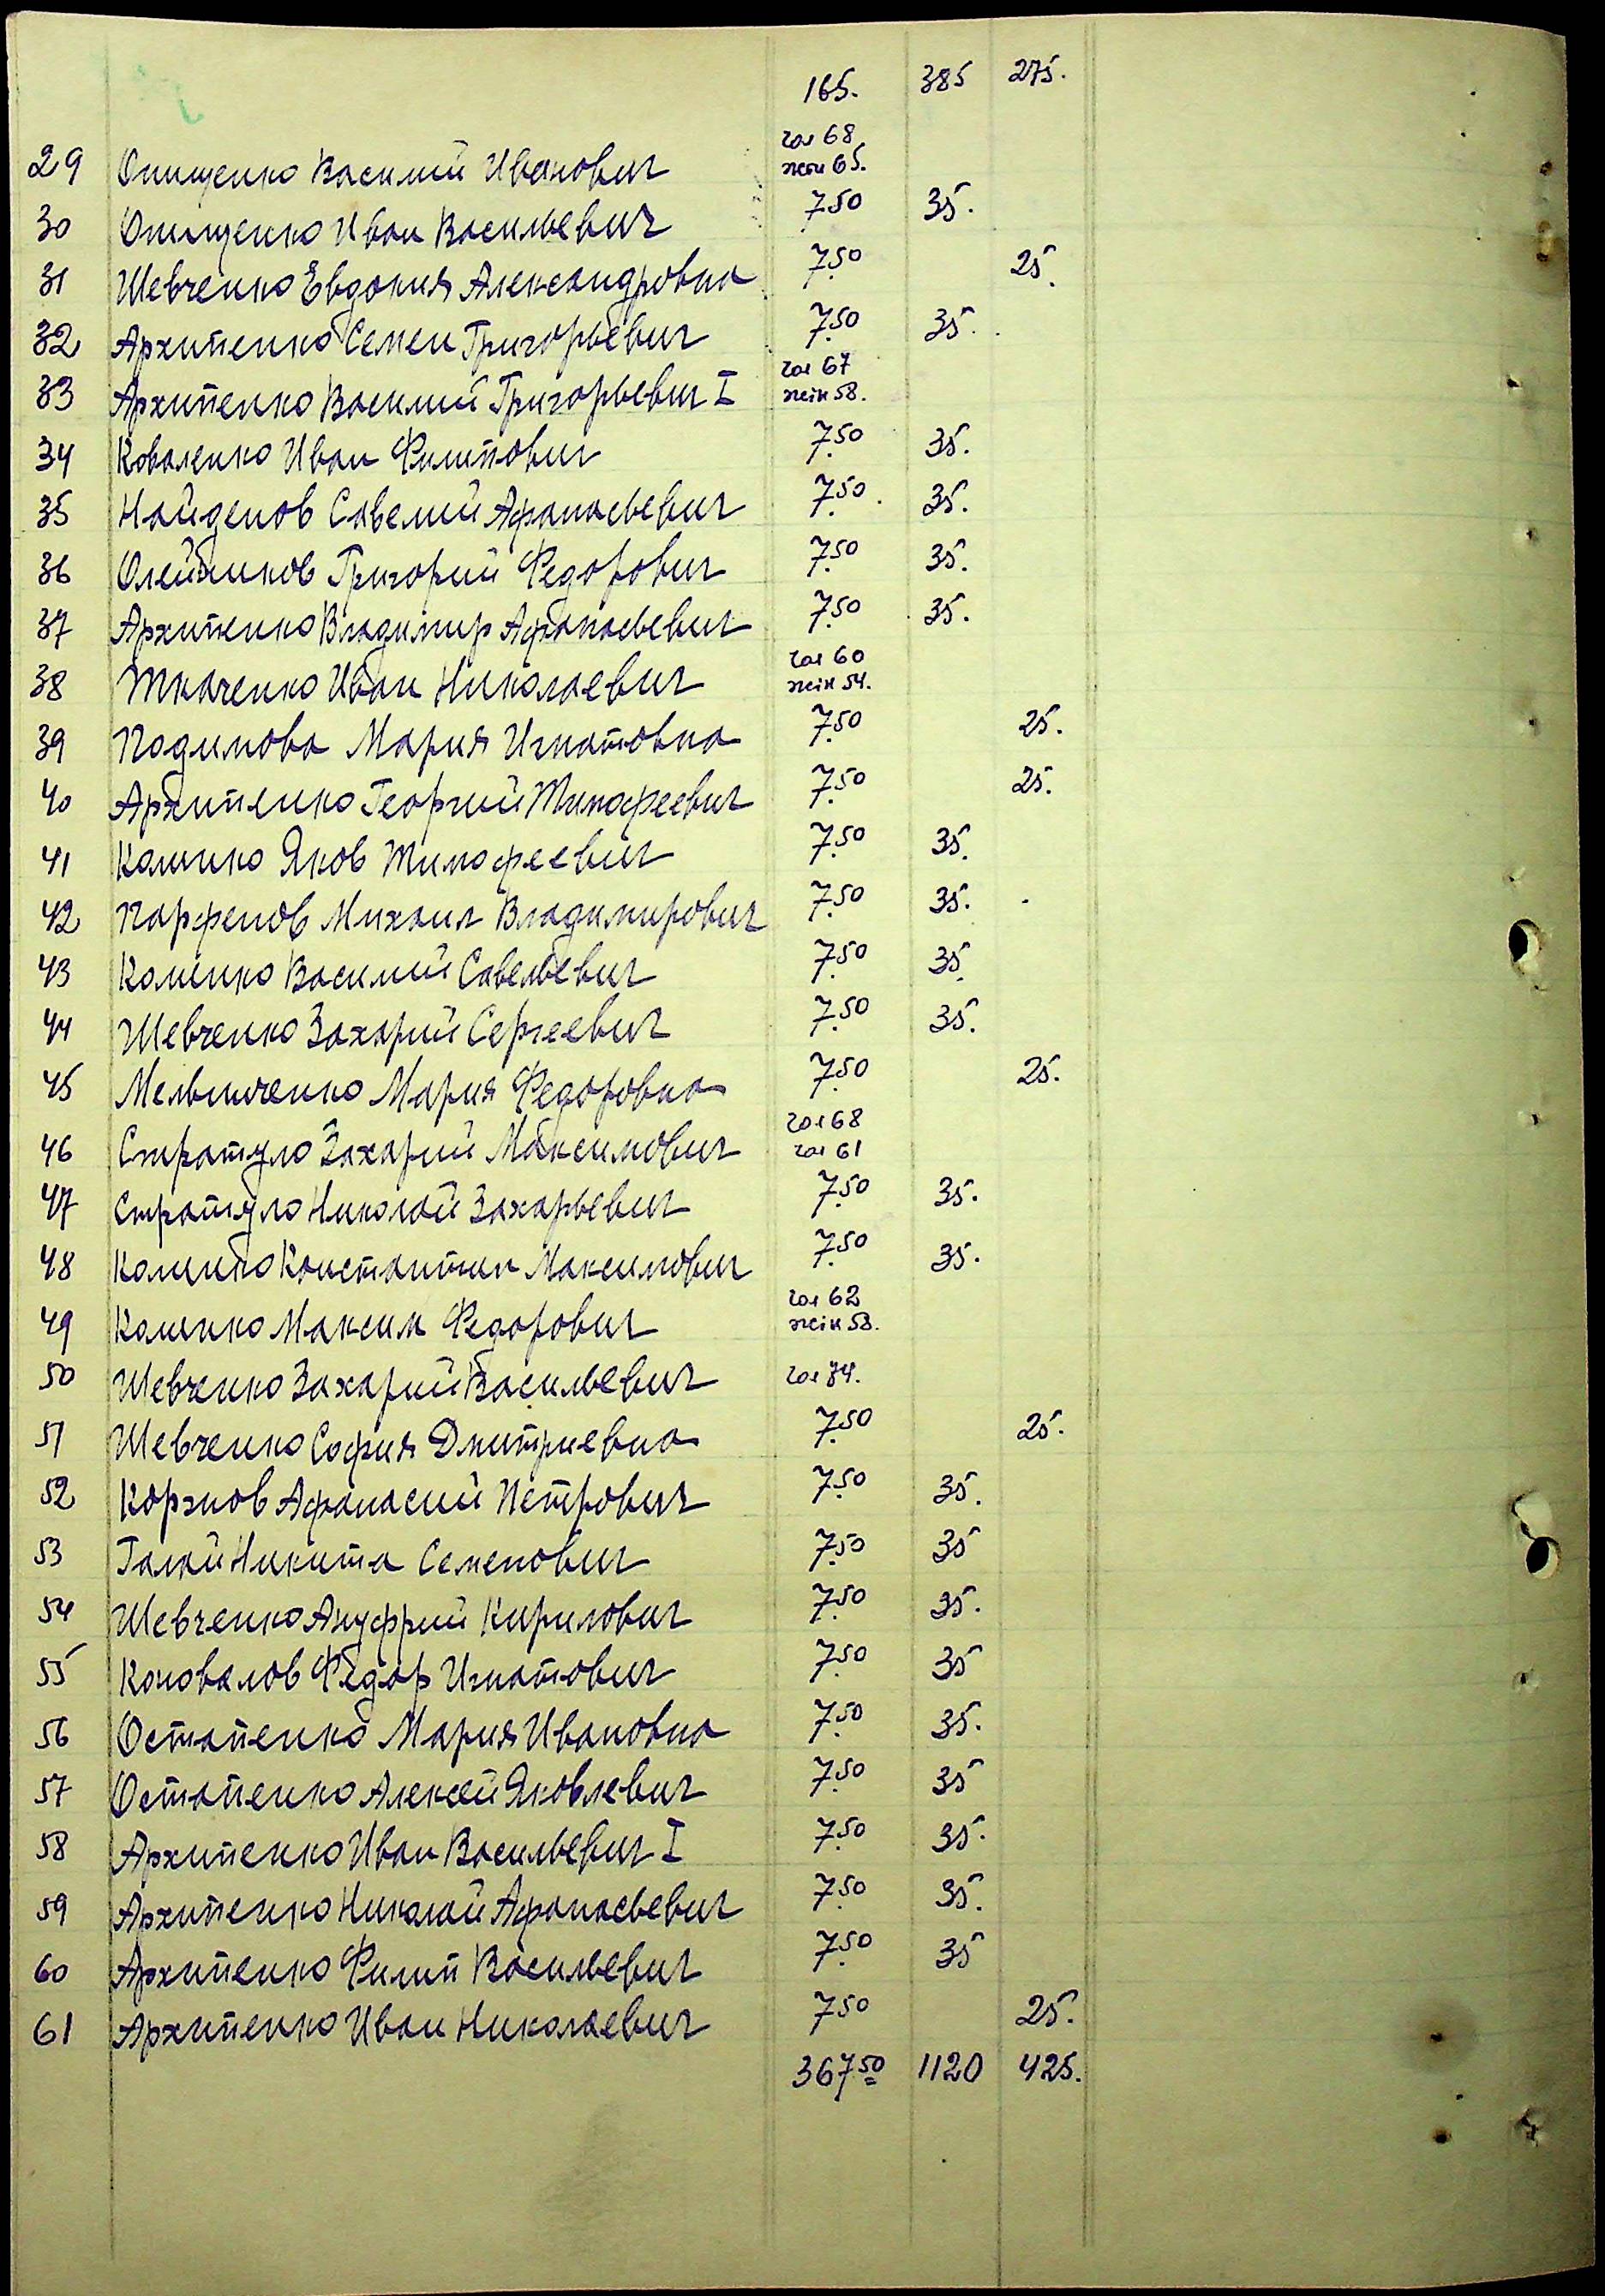 165. 385 275.
29 Онищенко Василий Иванович чол 68 жін 65.
30 Онищенко Иван Васильевич 7.50 35.
31 Шевченко Евдокия Александровна 7.50 25.
32 Архипенко Семен Григорьевич 7.50 35.
33 Архипенко Василий Григорьевич I чол 67 жін 58.
34 Коваленко Иван Филипович 7.50 35.
35 Найденов Савелий Афанасьевич 7.50 35.
36 Олейников Григорий Федорович 7.50 35.
37 Архипенко Владимир Афанасьевич 7.50 35.
38 Ткаченко Иван Николаевич чол 60 жін 54.
39 Подимова Мария Игнатовна 7.50 25.
40 Архипенко Георгий Тимофеевич 7.50 25.
41 Калинко Яков Тимофеевич 7.50 35.
42 Парфенов Михаил Владимирович 7.50 35.
43 Калинко Василий Савельевич 7.50 35.
44 Шевченко Захарий Сергеевич 7.50 35.
45 Мельниченко Мария Федоровна 7.50 25.
46 Стратуло Захарий Максимович чол 68 чол 61
47 Стратуло Николай Захарьевич 7.50 35.
48 Калинко Константин Максимович 7.50 35.
49 Калинко Максим Федорович чол 62 жін 58.
50 Шевченко Захарий Васильевич чол 74.
51 Шевченко София Дмитриевна 7.50 25.
52 Коржов Афанасий Петрович 7.50 35.
53 Галай Никита Семенович 7.50 35
54 Шевченко Ануфрий Кирилович 7.50 35.
55 Коновалов Федор Игнатович 7.50 35
56 Остапенко Мария Ивановна 7.50 35.
57 Остапенко Алексей Яковлевич 7.50 35
58 Архипенко Иван Васильевич I 7.50 35.
59 Архипенко Николай Афанасьевич 7.50 35.
60 Архипенко Филип Васильевич 7.50 35
61 Архипенко Иван Николаевич 7.50 25.
367.50 1120 425.